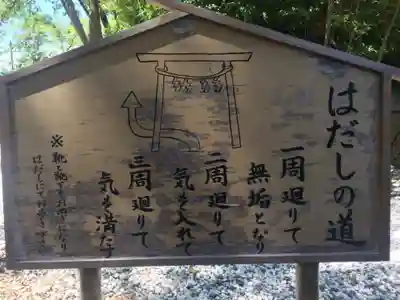 はだしの道
一周廻りて
無垢となり
二周廻りて
気を入れて
三周廻りて
気を満たす
※靴と靴下をお脱ぎになり
はだしにて